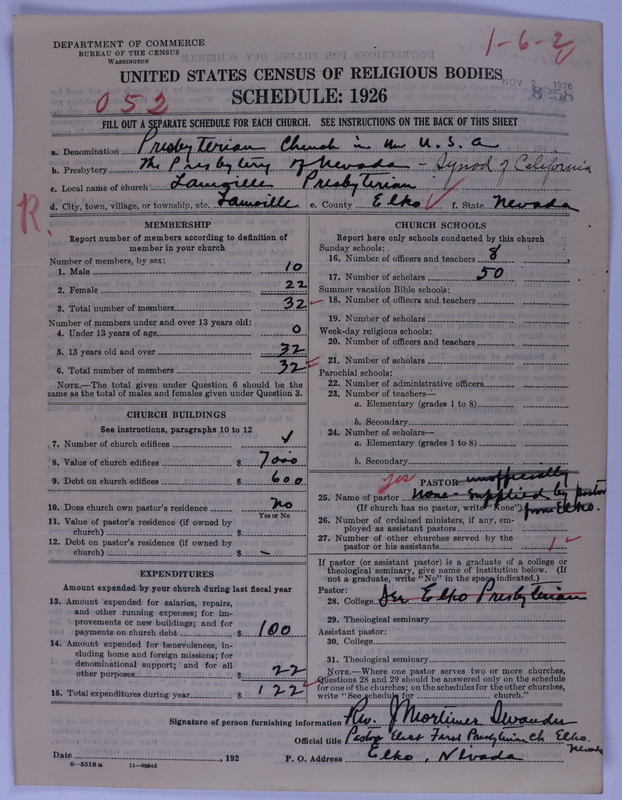 DEPARTMENT OF COMMERCE
BUREAU OF THE CENSUS
WASHINGTON
1-6-2
UNITED STATES CENSUS OF RELIGIOUS BODIES
NOV 2 1926
8258
052
SCHEDULE: 1926
FILL OUT A SEPARATE SCHEDULE FOR EACH CHURCH. SEE INSTRUCTIONS ON THE BACK OF THIS SHEET
a. Denomination Presbyterian Church in the U.S.A
b. Presbytery The Presbytery of Nevada - Synod of California
c. Local name of church Lamoille Presbyterian
d. City, town, village, or township, etc. Lamoille e. County Elko f. State Nevada
R.
MEMBERSHIP
Report number of members according to definition of
member in your church
Number of members, by sex:
1. Male 10
2. Female 22
3. Total number of members 32
Number of members under and over 13 years old:
4. Under 13 years of age 0
5. 13 years old and over 32
6. Total number of members 32
NOTE.—The total given under Question 6 should be the
same as the total of males and females given under Question 3.
CHURCH BUILDINGS
See instructions, paragraphs 10 to 12
7. Number of church edifices
8. Value of church edifices $ 7000
9. Debt on church edifices $ 600
10. Does church own pastor's residence No
Yes or No
11. Value of pastor's residence (if owned by
church) $
12. Debt on pastor's residence (if owned by
church) $ -
EXPENDITURES
Amount expended by your church during last fiscal year
13. Amount expended for salaries, repairs,
and other running expenses; for im-
provements or new buildings; and for
payments on church debt $ 100
14. Amount expended for benevolences, in-
cluding home and foreign missions; for
denominational support; and for all
other purposes $ 22
15. Total expenditures during year $ 122
CHURCH SCHOOLS
Report here only schools conducted by this church
Sunday schools:
16. Number of officers and teachers 8
17. Number of scholars 50
Summer vacation Bible schools:
18. Number of officers and teachers
19. Number of scholars
Week-day religious schools:
20. Number of officers and teachers
21. Number of scholars
Parochial schools:
22. Number of administrative officers
23. Number of teachers—
a. Elementary (grades 1 to 8)
b. Secondary
24. Number of scholars—
a. Elementary (grades 1 to 8)
b. Secondary
yes PASTOR unofficially
25. Name of pastor None - Supplied by pastor
(If church has no pastor, write "None") from Elko.
26. Number of ordained ministers, if any, em-
ployed as assistant pastors
27. Number of other churches served by the
pastor or his assistants 1
If pastor (or assistant pastor) is a graduate of a college or
theological seminary, give name of institution below. (If
not a graduate, write "No" in the space indicated.)
Pastor:
28. College See Elko Presbyterian
29. Theological seminary
Assistant pastor:
30. College
31. Theological seminary
NOTE.—Where one pastor serves two or more churches,
Questions 28 and 29 should be answered only on the schedule
for one of the churches; on the schedules for the other churches,
write "See schedule for church."
Signature of person furnishing information Rev. J Mortimer
Official title Pastor Elect First Presbyterian Ch. Elko. Nevada
Date , 192 P. O. Address Elko, Nevada
8-5518 a